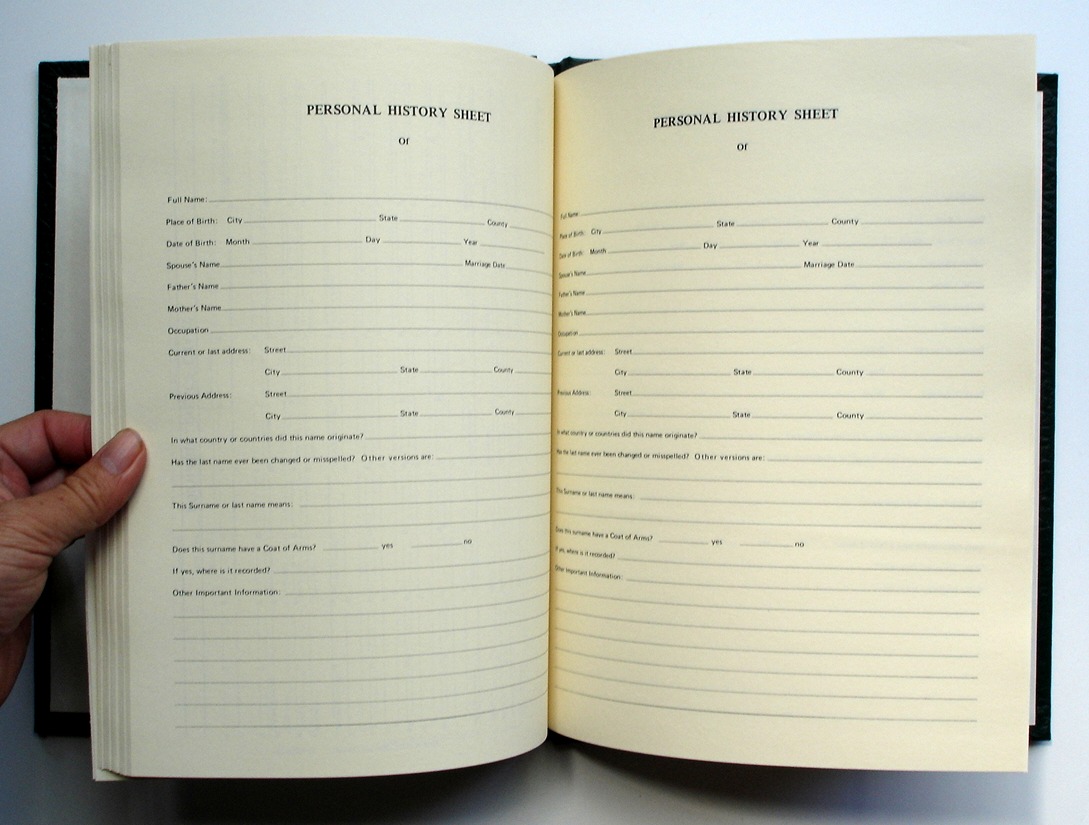 PERSONAL HISTORY SHEET
Of
Full Name:
Place of Birth: City State County
Date of Birth: Month Day Year
Spouse's Name Marriage Date
Father's Name
Mother's Name
Occupation
Current or last address: Street
City State County
Previous Address: Street
City State County
In what country or countries did this name originate?
Has the last name ever been changed or misspelled? Other versions are:
This Surname or last name means:
Does this surname have a Coat of Arms? yes no
If yes, where is it recorded?
Other Important Information:
PERSONAL HISTORY SHEET
Of
Full Name:
Place of Birth: City State County
Date of Birth: Month Day Year
Spouse's Name Marriage Date
Father's Name
Mother's Name
Occupation
Current or last address: Street
City State County
Previous Address: Street
City State County
In what country or countries did this name originate?
Has the last name ever been changed or misspelled? Other versions are:
This Surname or last name means:
Does this surname have a Coat of Arms? yes no
If yes, where is it recorded?
Other Important Information: